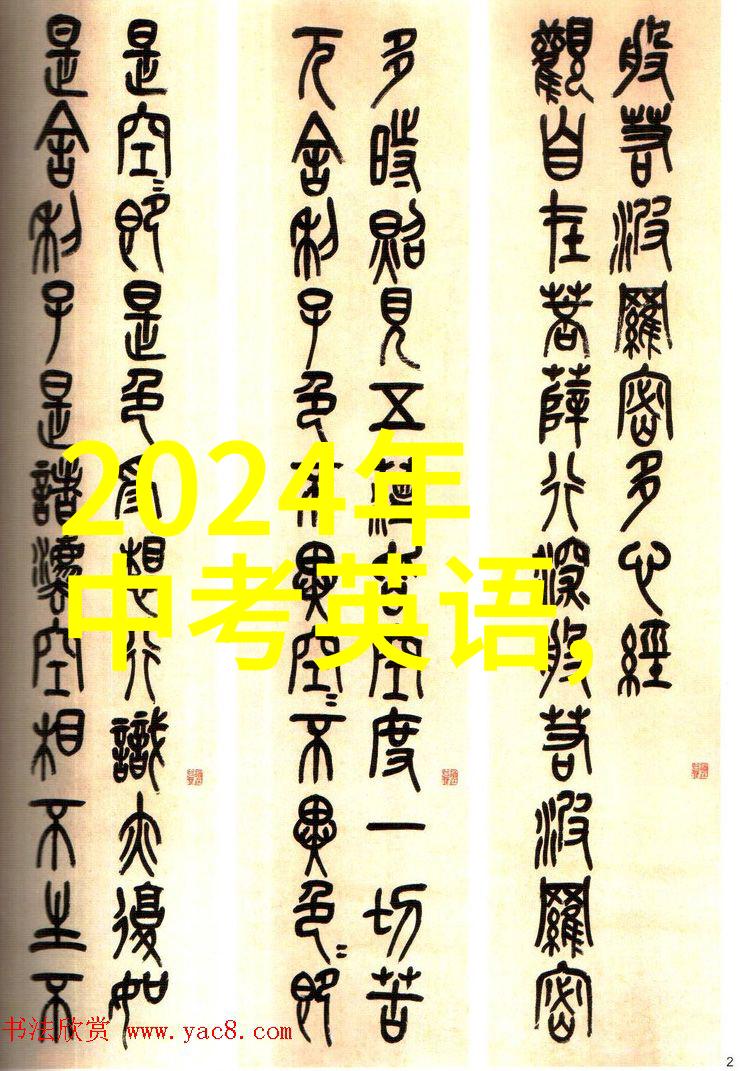 般若波羅密多心經
觀自在菩薩行深般若波羅密
多時照見五蘊皆空度一切苦
厄舍利子色不異空〻不異色〻即
是空〻即是色受想行識亦復如
是舍利子是諸法空相不生不
2024年
中考英语,
书法欣赏 www.yac8.com
2